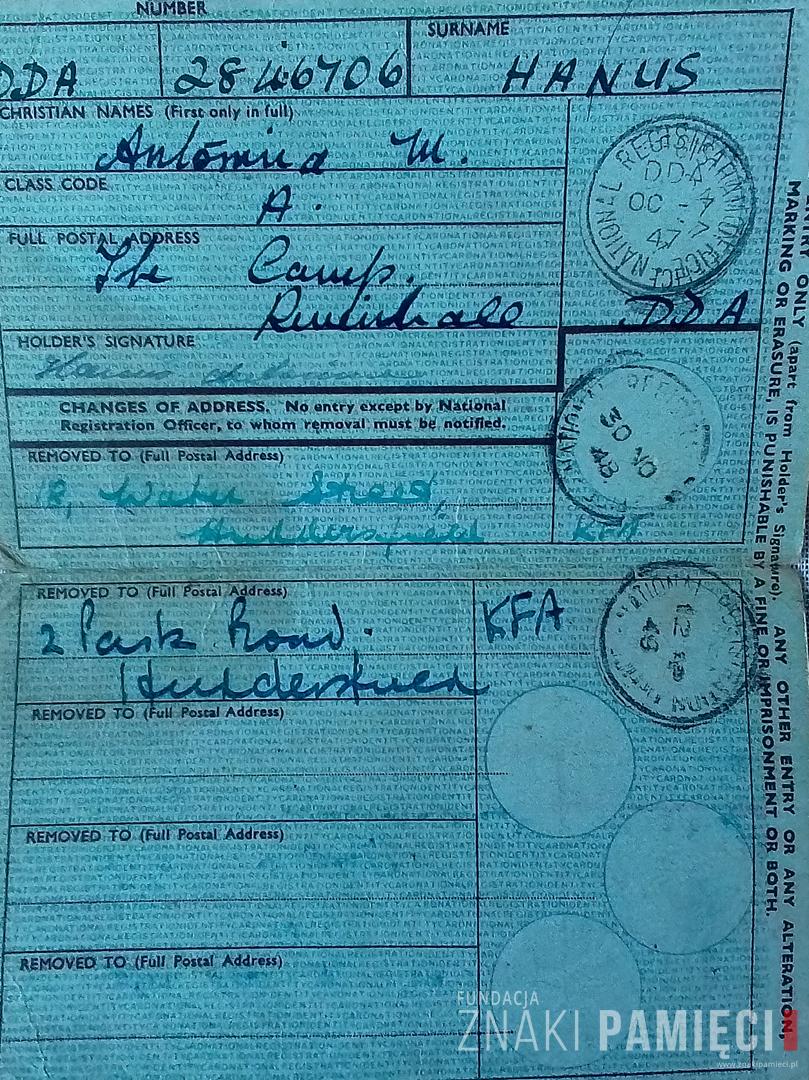 NUMBER
SURNAME
DDA
2846706
HANUS
CHRISTIAN NAMES (First only in full)
Antonina M.
CLASS CODE
A.
FULL POSTAL ADDRESS
The Camp.
DDA
HOLDER'S SIGNATURE
Hanus Antonina
CHANGES OF ADDRESS. No entry except by National
Registration Officer, to whom removal must be notified.
REMOVED TO (Full Postal Address)
18, Water Street,
Huddersfield
KFA
30 NO
48
REMOVED TO (Full Postal Address)
2 Park Road.
KFA
Huddersfield
49
REMOVED TO (Full Postal Address)
REMOVED TO (Full Postal Address)
REMOVED TO (Full Postal Address)
NATIONAL REGISTRATION OFFICE
DDA
OC
47
ONLY (apart from Holder's Signature). ANY OTHER ENTRY OR ANY ALTERATION,
MARKING OR ERASURE, IS PUNISHABLE BY A FINE OR IMPRISONMENT OR BOTH.
FUNDACJA
ZNAKI PAMIĘCI
www.znakipamieci.pl